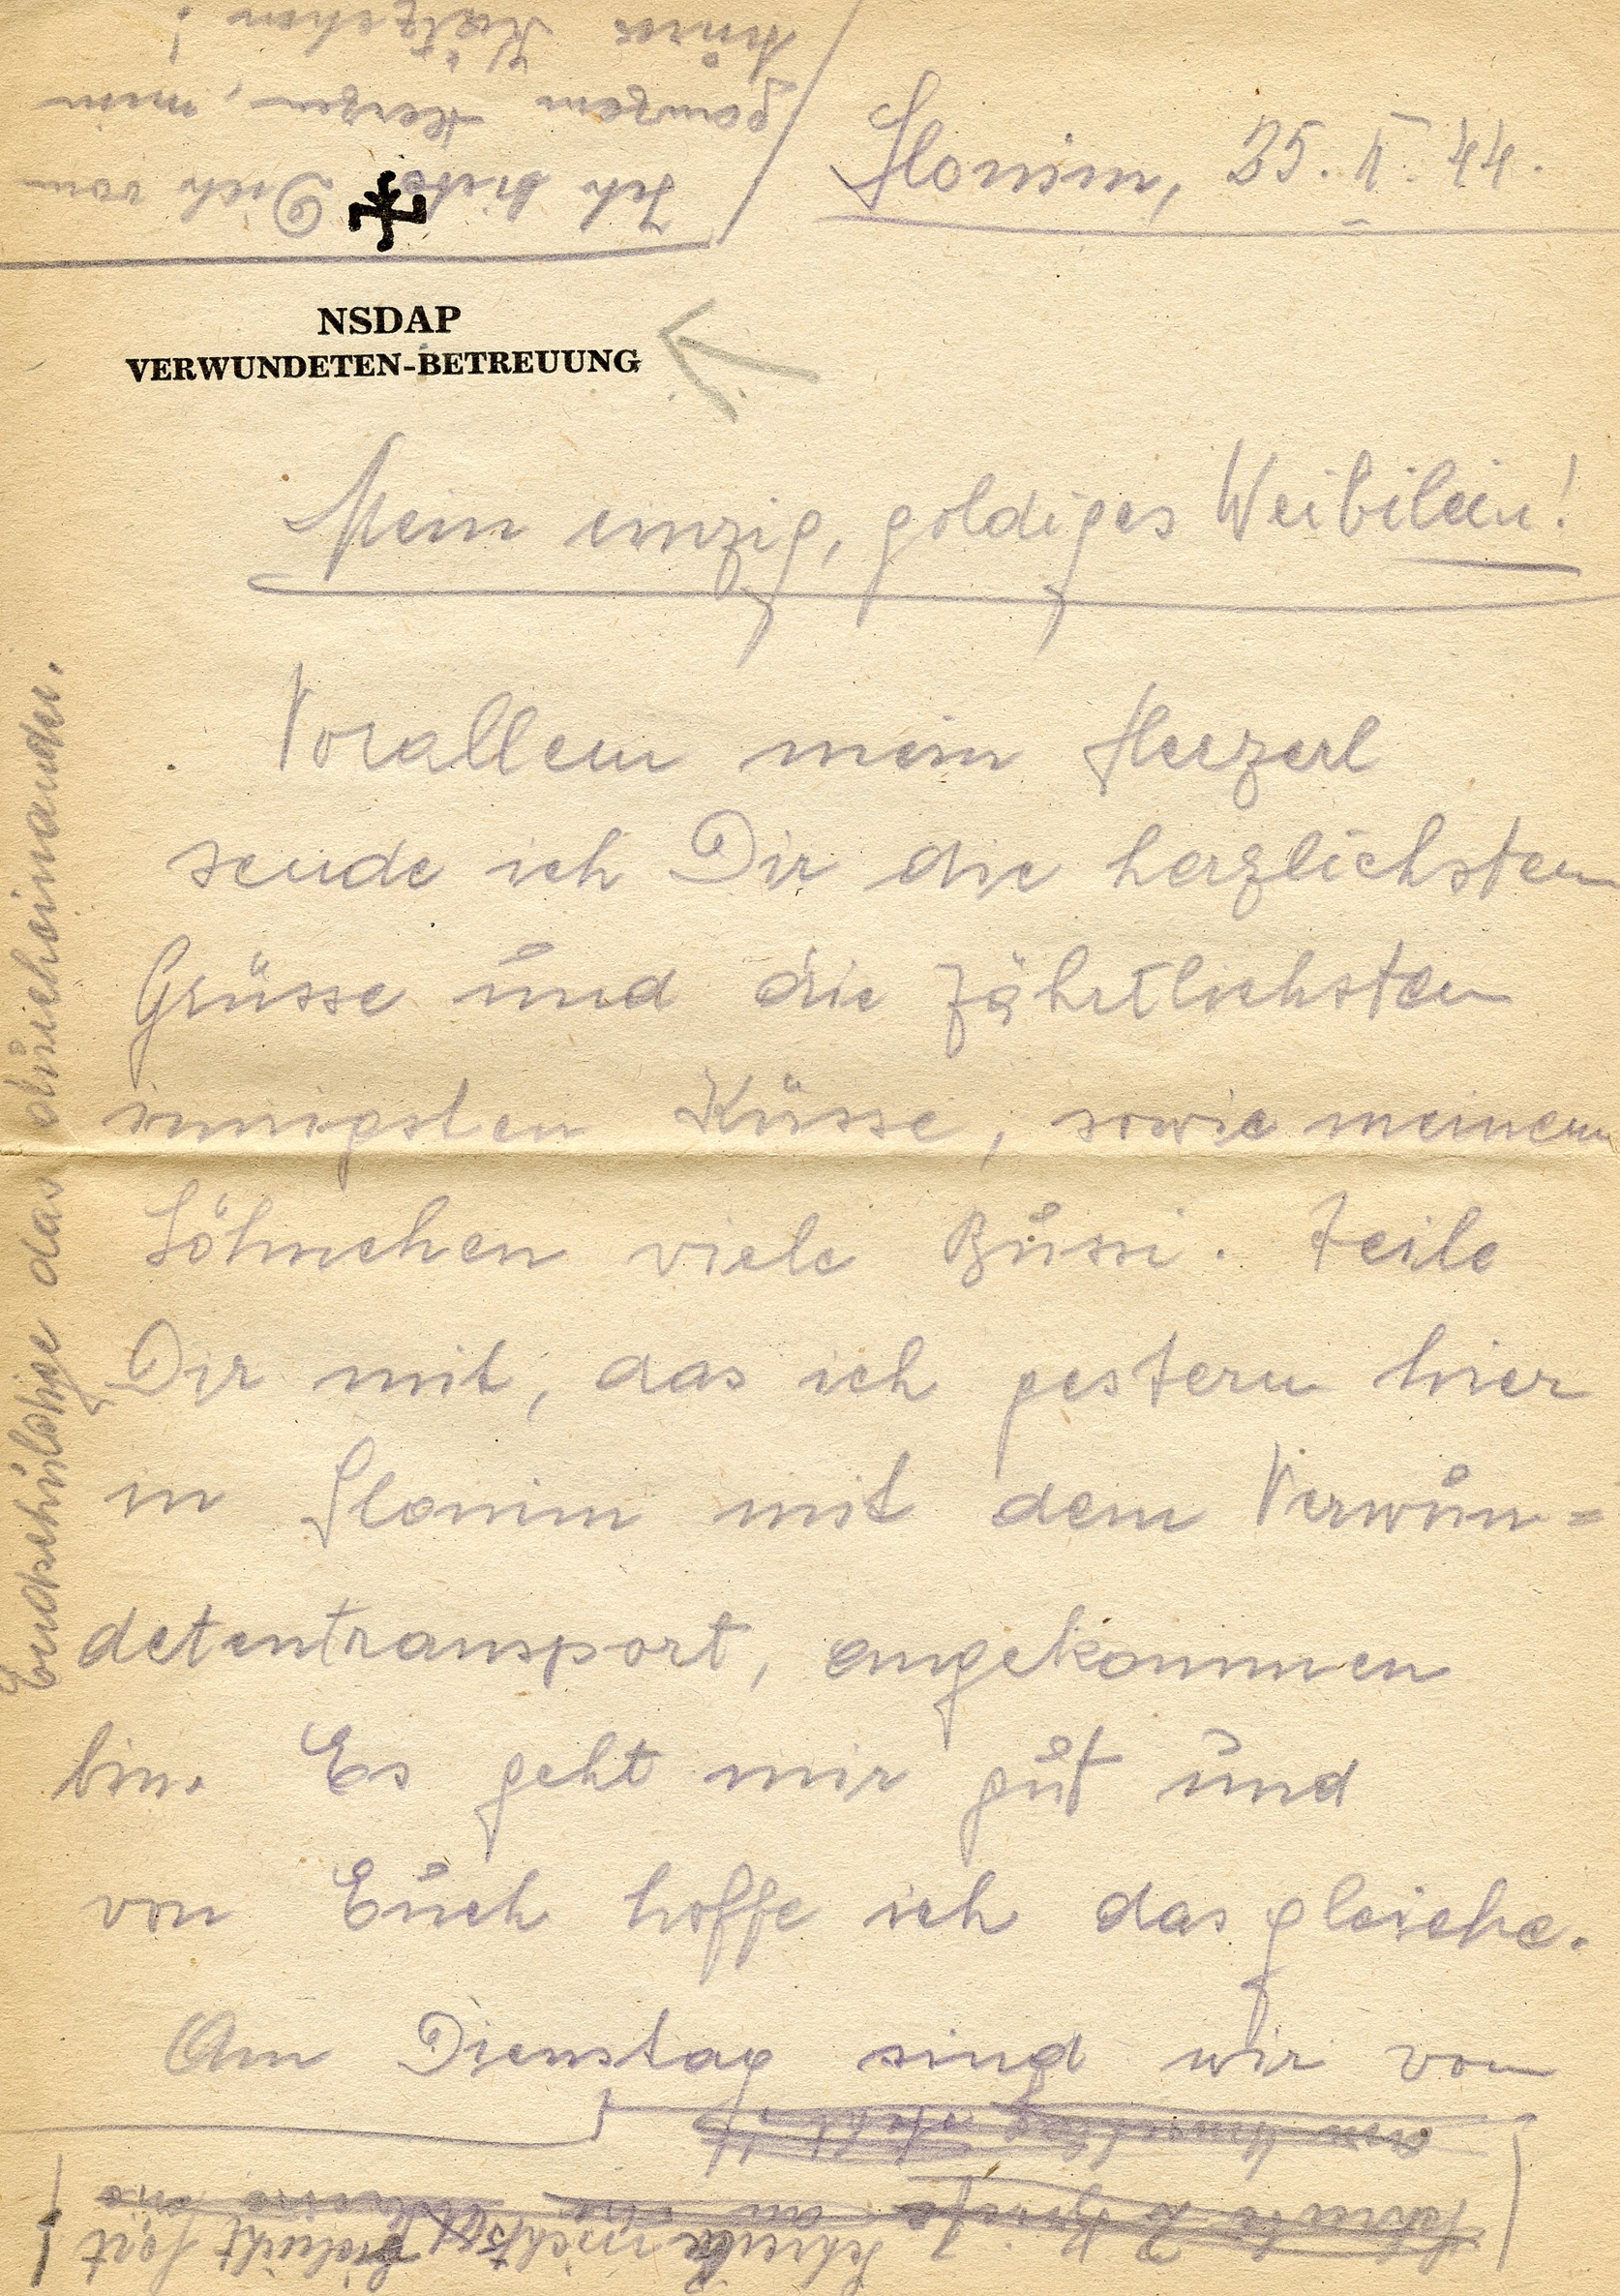 Slonim, 25. V. 44.
Ich bitte Dich vom
ganzem Herzen, mein
Kätzchen!
NSDAP
VERWUNDETEN-BETREUUNG
Mein einzig, goldiges Weibilein!
Vorallem mein Herzerl
sende ich Dir die herzlichsten
Grüsse und die zährtlichsten
innigsten Küsse, sowie meinem
Söhnchen viele Bussi. Teile
Dir mit, das ich gestern hier
in Slonim mit dem Verwun=
detentransport, angekommen
bin. Es geht mir gut und
von Euch hoffe ich das gleiche.
Am Dienstag sind wir von
Entschuldige das durcheinander.